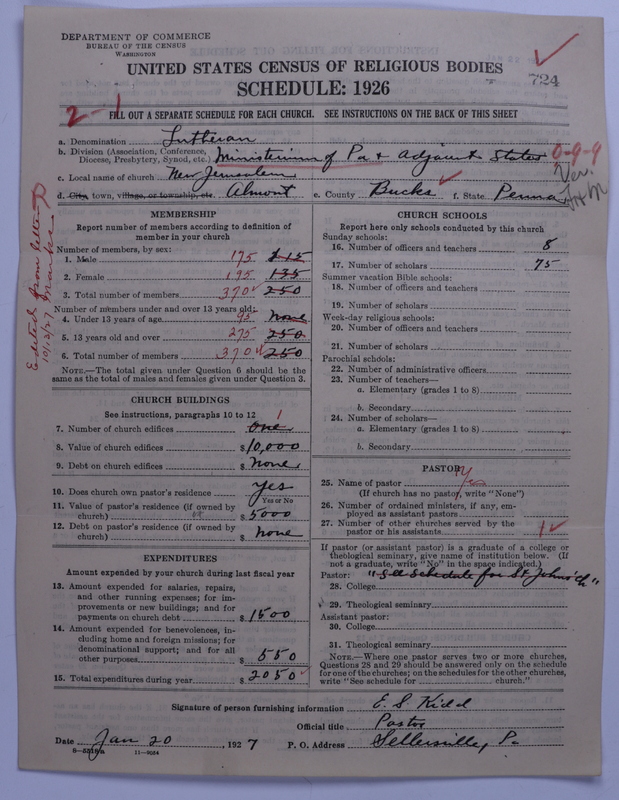 DEPARTMENT OF COMMERCE
BUREAU OF THE CENSUS
WASHINGTON
UNITED STATES CENSUS OF RELIGIOUS BODIES
724
SCHEDULE: 1926
2-1
FILL OUT A SEPARATE SCHEDULE FOR EACH CHURCH. SEE INSTRUCTIONS ON THE BACK OF THIS SHEET
a. Denomination Lutheran
b. Division (Association, Conference, Diocese, Presbytery, Synod, etc.) Ministerium of Pa & Adjacent States 0-9-9
c. Local name of church New Jerusalem Ver.
d. City, town, village, or township, etc. Almont e. County Bucks f. State Penna
Edited from letter 10/12/27
MEMBERSHIP
Report number of members according to definition of
member in your church
Number of members, by sex:
1. Male 175 115
2. Female 195 135
3. Total number of members 370 250
Number of members under and over 13 years old:
4. Under 13 years of age 95 None
5. 13 years old and over 275 250
6. Total number of members 370 250
NOTE.—The total given under Question 6 should be the
same as the total of males and females given under Question 3.
CHURCH BUILDINGS
See instructions, paragraphs 10 to 12
7. Number of church edifices one 1
8. Value of church edifices $ 10,000
9. Debt on church edifices $ None
10. Does church own pastor's residence Yes
Yes or No
11. Value of pastor's residence (if owned by
church) $ 5000
12. Debt on pastor's residence (if owned by
church) $ None
EXPENDITURES
Amount expended by your church during last fiscal year
13. Amount expended for salaries, repairs,
and other running expenses; for im-
provements or new buildings; and for
payments on church debt $ 1500
14. Amount expended for benevolences, in-
cluding home and foreign missions; for
denominational support; and for all
other purposes $ 550
15. Total expenditures during year $ 2050
CHURCH SCHOOLS
Report here only schools conducted by this church
Sunday schools:
16. Number of officers and teachers 8
17. Number of scholars 75
Summer vacation Bible schools:
18. Number of officers and teachers
19. Number of scholars
Week-day religious schools:
20. Number of officers and teachers
21. Number of scholars
Parochial schools:
22. Number of administrative officers
23. Number of teachers—
a. Elementary (grades 1 to 8)
b. Secondary
24. Number of scholars—
a. Elementary (grades 1 to 8)
b. Secondary
PASTOR
25. Name of pastor Yes
(If church has no pastor, write "None")
26. Number of ordained ministers, if any, em-
ployed as assistant pastors
27. Number of other churches served by the
pastor or his assistants 1
If pastor (or assistant pastor) is a graduate of a college or
theological seminary, give name of institution below. (If
not a graduate, write "No" in the space indicated.)
Pastor: "See Schedule for St. John's ch"
28. College
29. Theological seminary
Assistant pastor:
30. College
31. Theological seminary
NOTE.—Where one pastor serves two or more churches,
Questions 28 and 29 should be answered only on the schedule
for one of the churches; on the schedules for the other churches,
write "See schedule for church."
Signature of person furnishing information E. S. Kidd
Official title Pastor
Date Jan 20, 1927 P. O. Address Sellersville, Pa
11-9034